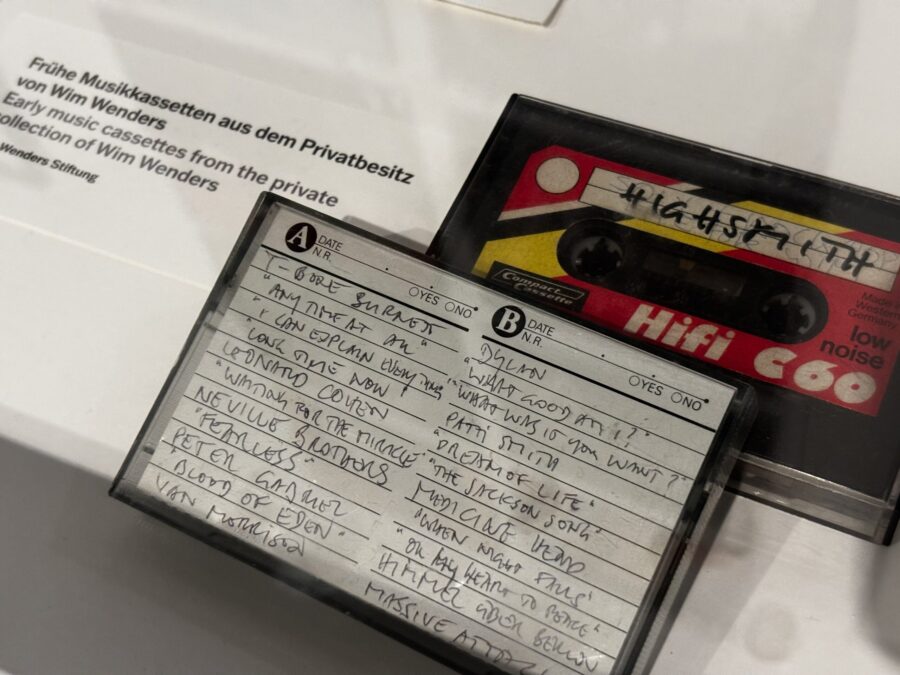 Frühe Musikkassetten aus dem Privatbesitz
von Wim Wenders
Early music cassettes from the private
collection of Wim Wenders
Wenders Stiftung
A DATE
N.R. YES NO
T-BONE BURNETT
"ANYTIME AT ALL"
"I CAN EXPLAIN EVERYTHING"
LONG TIME NOW"
LEONARD COHEN
"WAITING FOR THE MIRACLE"
NEVILLE BROTHERS
"FEARLESS"
PETER GABRIEL
"BLOOD OF EDEN"
VAN MORRISON
B DATE
N.R. YES NO
DYLAN
"WHAT GOOD AM I?"
"WHAT WAS IT YOU WANT?"
PATTI SMITH
"DREAM OF LIFE"
"THE JACKSON SONG"
MEDICINE HEAD
"WHEN NIGHT FALLS"
"ON MY HEART TO PEACE"
HIMMEL ÜBER BERLIN
MASSIVE ATTACK
HIGHSMITH
Compact
Cassette
Made in
Western
Germany
Hifi C60
low
noise